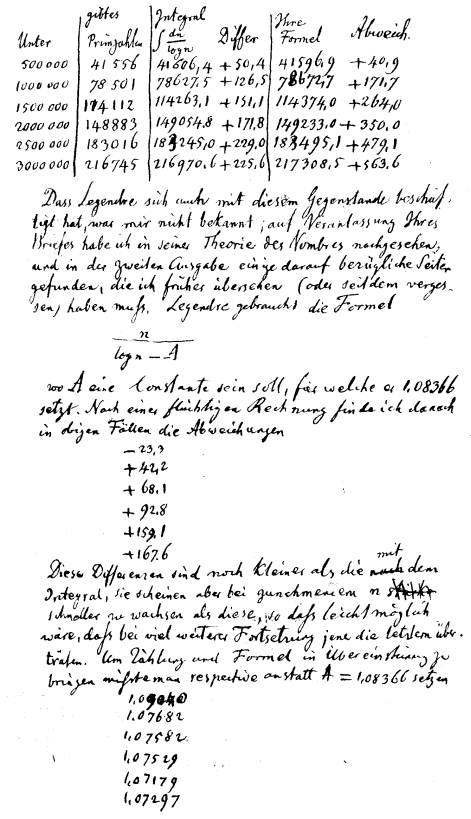 gibtes Integral Ihre
Unter Primzahlen ∫ dn/log n Differ Formel Abweich.
500000 41556 41606,4 +50,4 41596,9 +40,9
1000000 78501 78627,5 +126,5 78672,7 +171,7
1500000 114112 114263,1 +151,1 114374,0 +264,0
2000000 148883 149054,8 +171,8 149233,0 +350,0
2500000 183016 183245,0 +229,0 183495,1 +479,1
3000000 216745 216970,6 +225,6 217308,5 +563,6
Dass Legendre sich auch mit diesem Gegenstande beschäf-
tigt hat, war mir nicht bekannt; auf Veranlassung Ihres
Briefes habe ich in seiner Theorie des Nombres nachgesehen,
und in der zweiten Ausgabe einige darauf bezügliche Seiten
gefunden, die ich früher übersehen (oder seitdem verges-
sen) haben muss. Legendre gebraucht die Formel
n
log n – A
wo A eine Constante sein soll, für welche er 1,08366
setzt. Nach einer flüchtigen Rechnung finde ich danach
in obigen Fällen die Abweichungen
– 23,3
+ 42,2
+ 68,1
+ 92,8
+ 159,1
+ 167,6
Diese Differenzen sind noch kleiner als die mit dem
Integral, sie scheinen aber bei zunehmenden n
schneller zu wachsen als diese, so dass leicht möglich
wäre, dass bei viel weiterer Fortsetzung jene die letztern über-
träfen. Um Zählung und Formel in Übereinstimung zu
bringen müsste man respective anstatt A = 1,08366 setzen
1,09040
1,07682
1,07582
1,07529
1,07179
1,07297